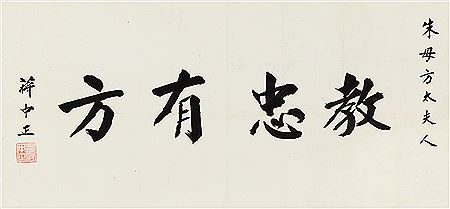 朱母方太夫人
教忠有方
蔣中正